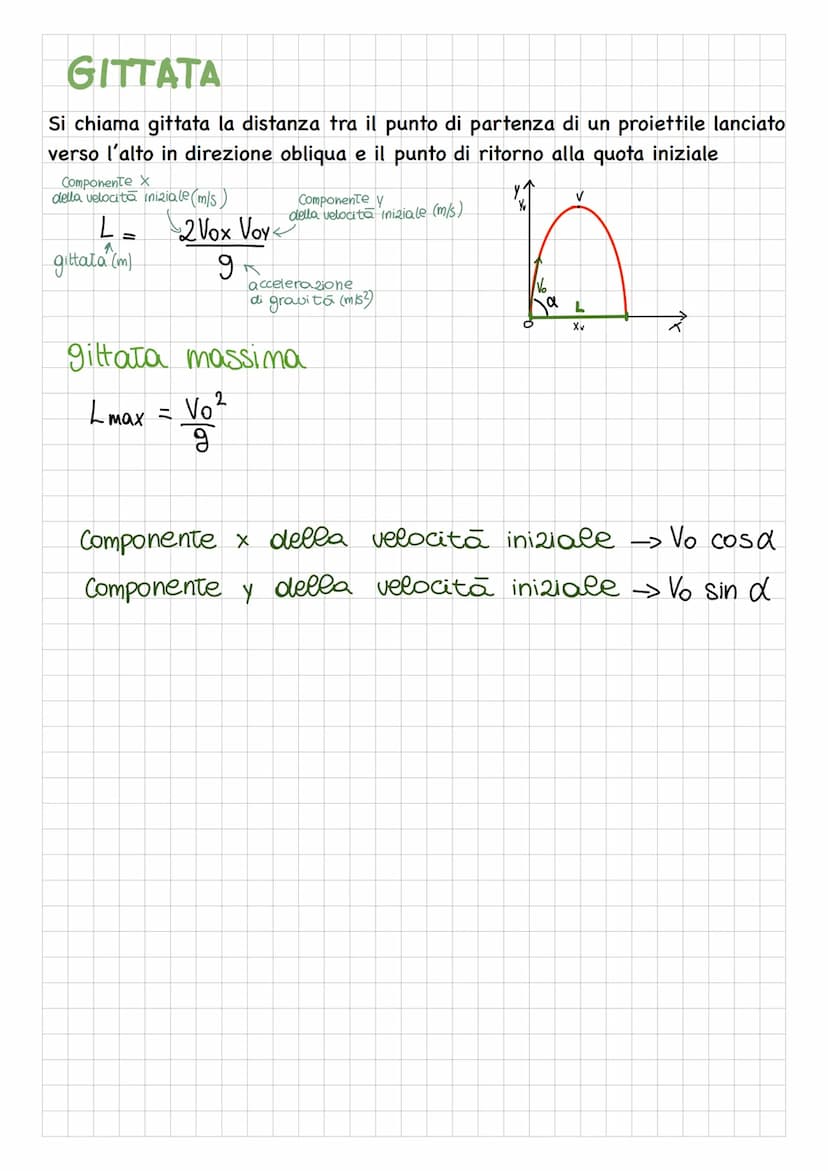 GITTATA
Si chiama gittata la distanza tra il punto di partenza di un proiettile lanciato
verso l'alto in direzione obliqua e il punto di ritorno alla quota iniziale
Componente x
della velocità iniziale (m/s)
Componente y
della velocità iniziale (m/s)
L = 2Vox Voy
g
gittata (m)
accelerazione
di gravità (m/s²)
y
Yv
V
Vo
α
L
O
Xv
x
gittata massima
L max = Vo²
g
Componente x della velocità iniziale → Vo cosα
Componente y della velocità iniziale → Vo sin α